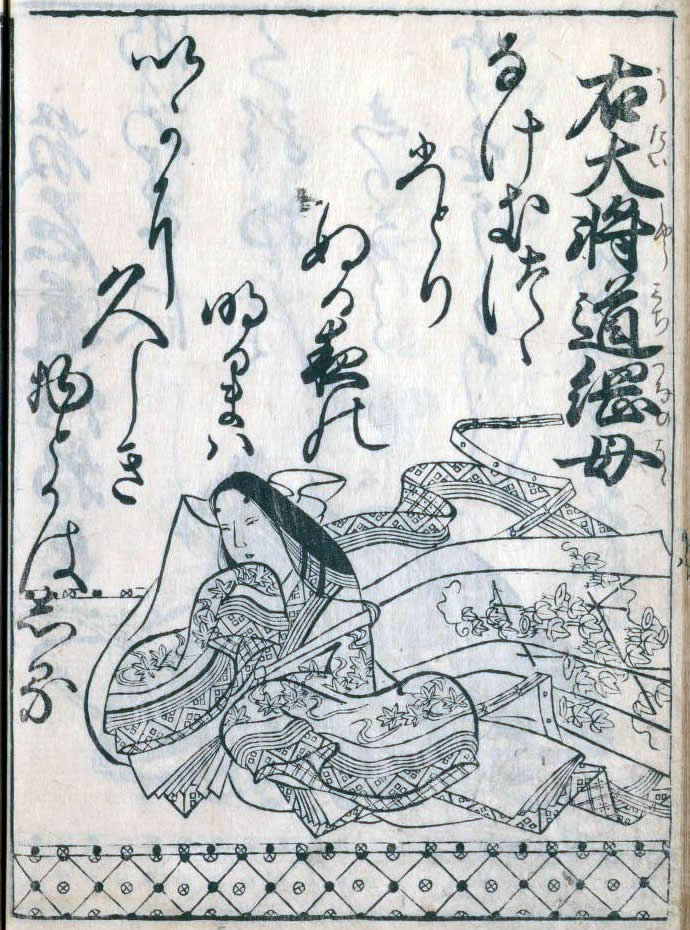 右大将道綱母
う たい しやう みち つなの はゝ
なけきつゝ
ひとり
ぬる夜の
明るまハ
いかに
久しき
物とかは
しる